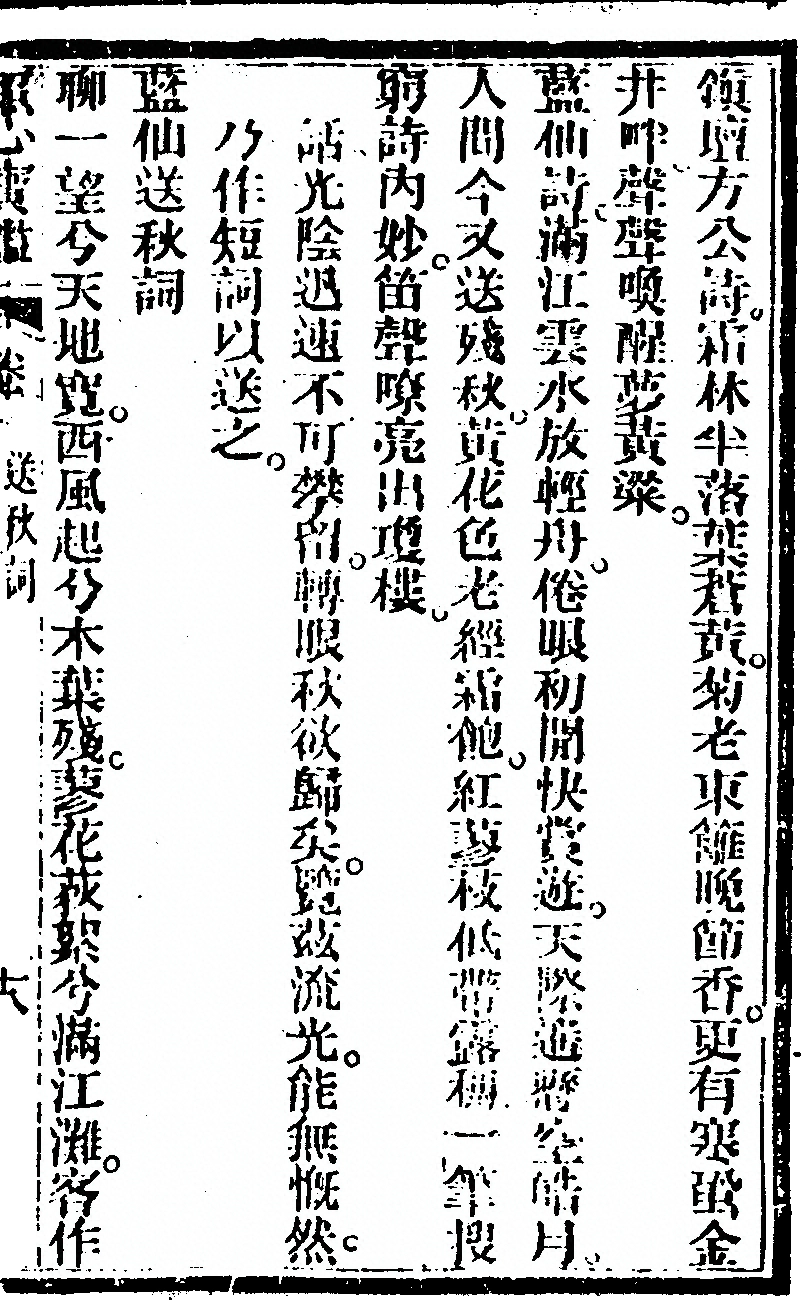 領壇方公詩霜林半落葉蒼黃菊老東籬晚節香更有寒蛩金
井畔聲聲喚醒夢黃粱
藍仙詩滿江雲水放輕舟倦眼初開快賞遊天際遙將空皓月
人間今又送殘秋黃花色老經霜飽紅蓼枝低帶露稠一筆搜
窮詩內妙笛聲嘹亮出瓊樓
話光陰迅速不可攀留轉眼秋欲歸矣覽茲流光能無慨然
乃作短詞以送之
藍仙送秋詞
聊一望兮天地寬西風起兮木葉殘蓼花荻絮兮滿江灘客作
卷 送秋詞 十八